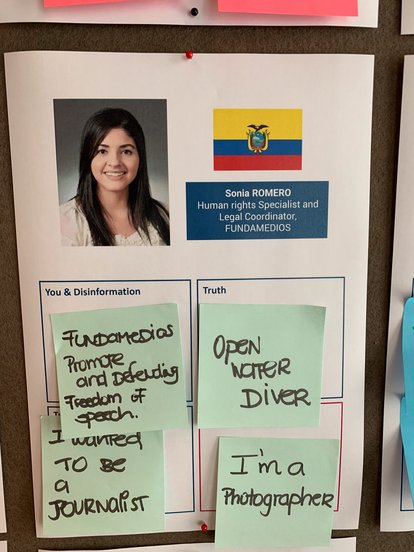 Sonia ROMERO
Human rights Specialist and
Legal Coordinator,
FUNDAMEDIOS
You & Disinformation
Truth
FUNDAMEDIOS
Promote
and Defending
Freedom of
speech.
OPEN
WATER
DIVER
I wanted
TO BE
a
JOURNALIST
I'm a
Photographer